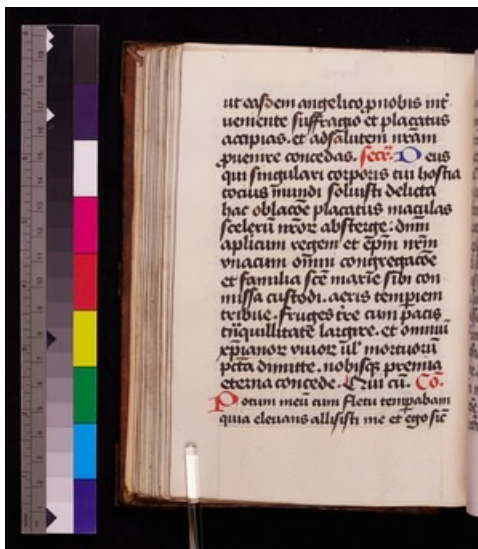 ut easdem angelico ꝓ nobis int̄
ueniente suffragio et placatus
accipias. et ad salutem nr̄am
ꝓuenire concedas. Secr̄. Deus
qui singulari corporis tui hostia
tocius mundi soluisti delicta
hac oblac̄oe placatus maculas
sceleru̅ nr̄or̄ absterge: dnm̄
aplicum regem et ep̄m nr̄m
vnacum omni congregac̄oe
et familia sc̄e marie sibi con
missa custodi. aeris temꝑiem
tribue. fruges tr̄e cum pacis
tr̄quillitate largire. et omniu̅
xp̄ianor̄ viuor̄ ul̄ mortuoru̅
pc̄ta dimitte. nobisqꝫ premia
eterna concede. Qui cu̅. Co̅.
Potum meu̅ cum fletu temꝑabam
quia eleuans allisisti me et ego sic̄